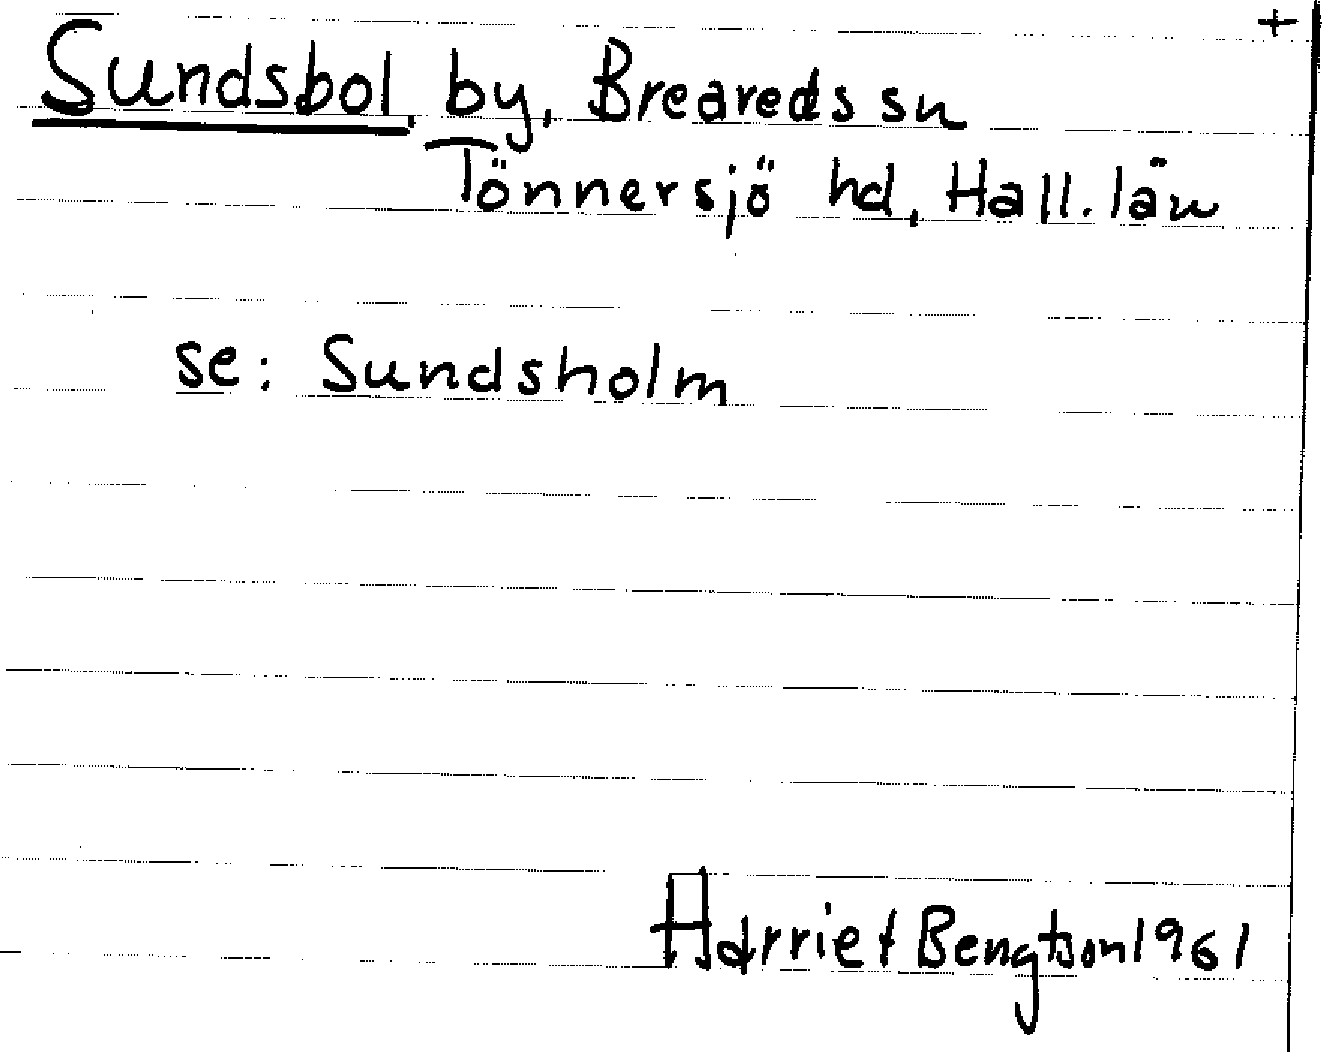 +
Sundsbol, by, Breareds sn
Tönnersjö hd, Hall. län
se: Sundsholm
Harriet Bengtson 1961